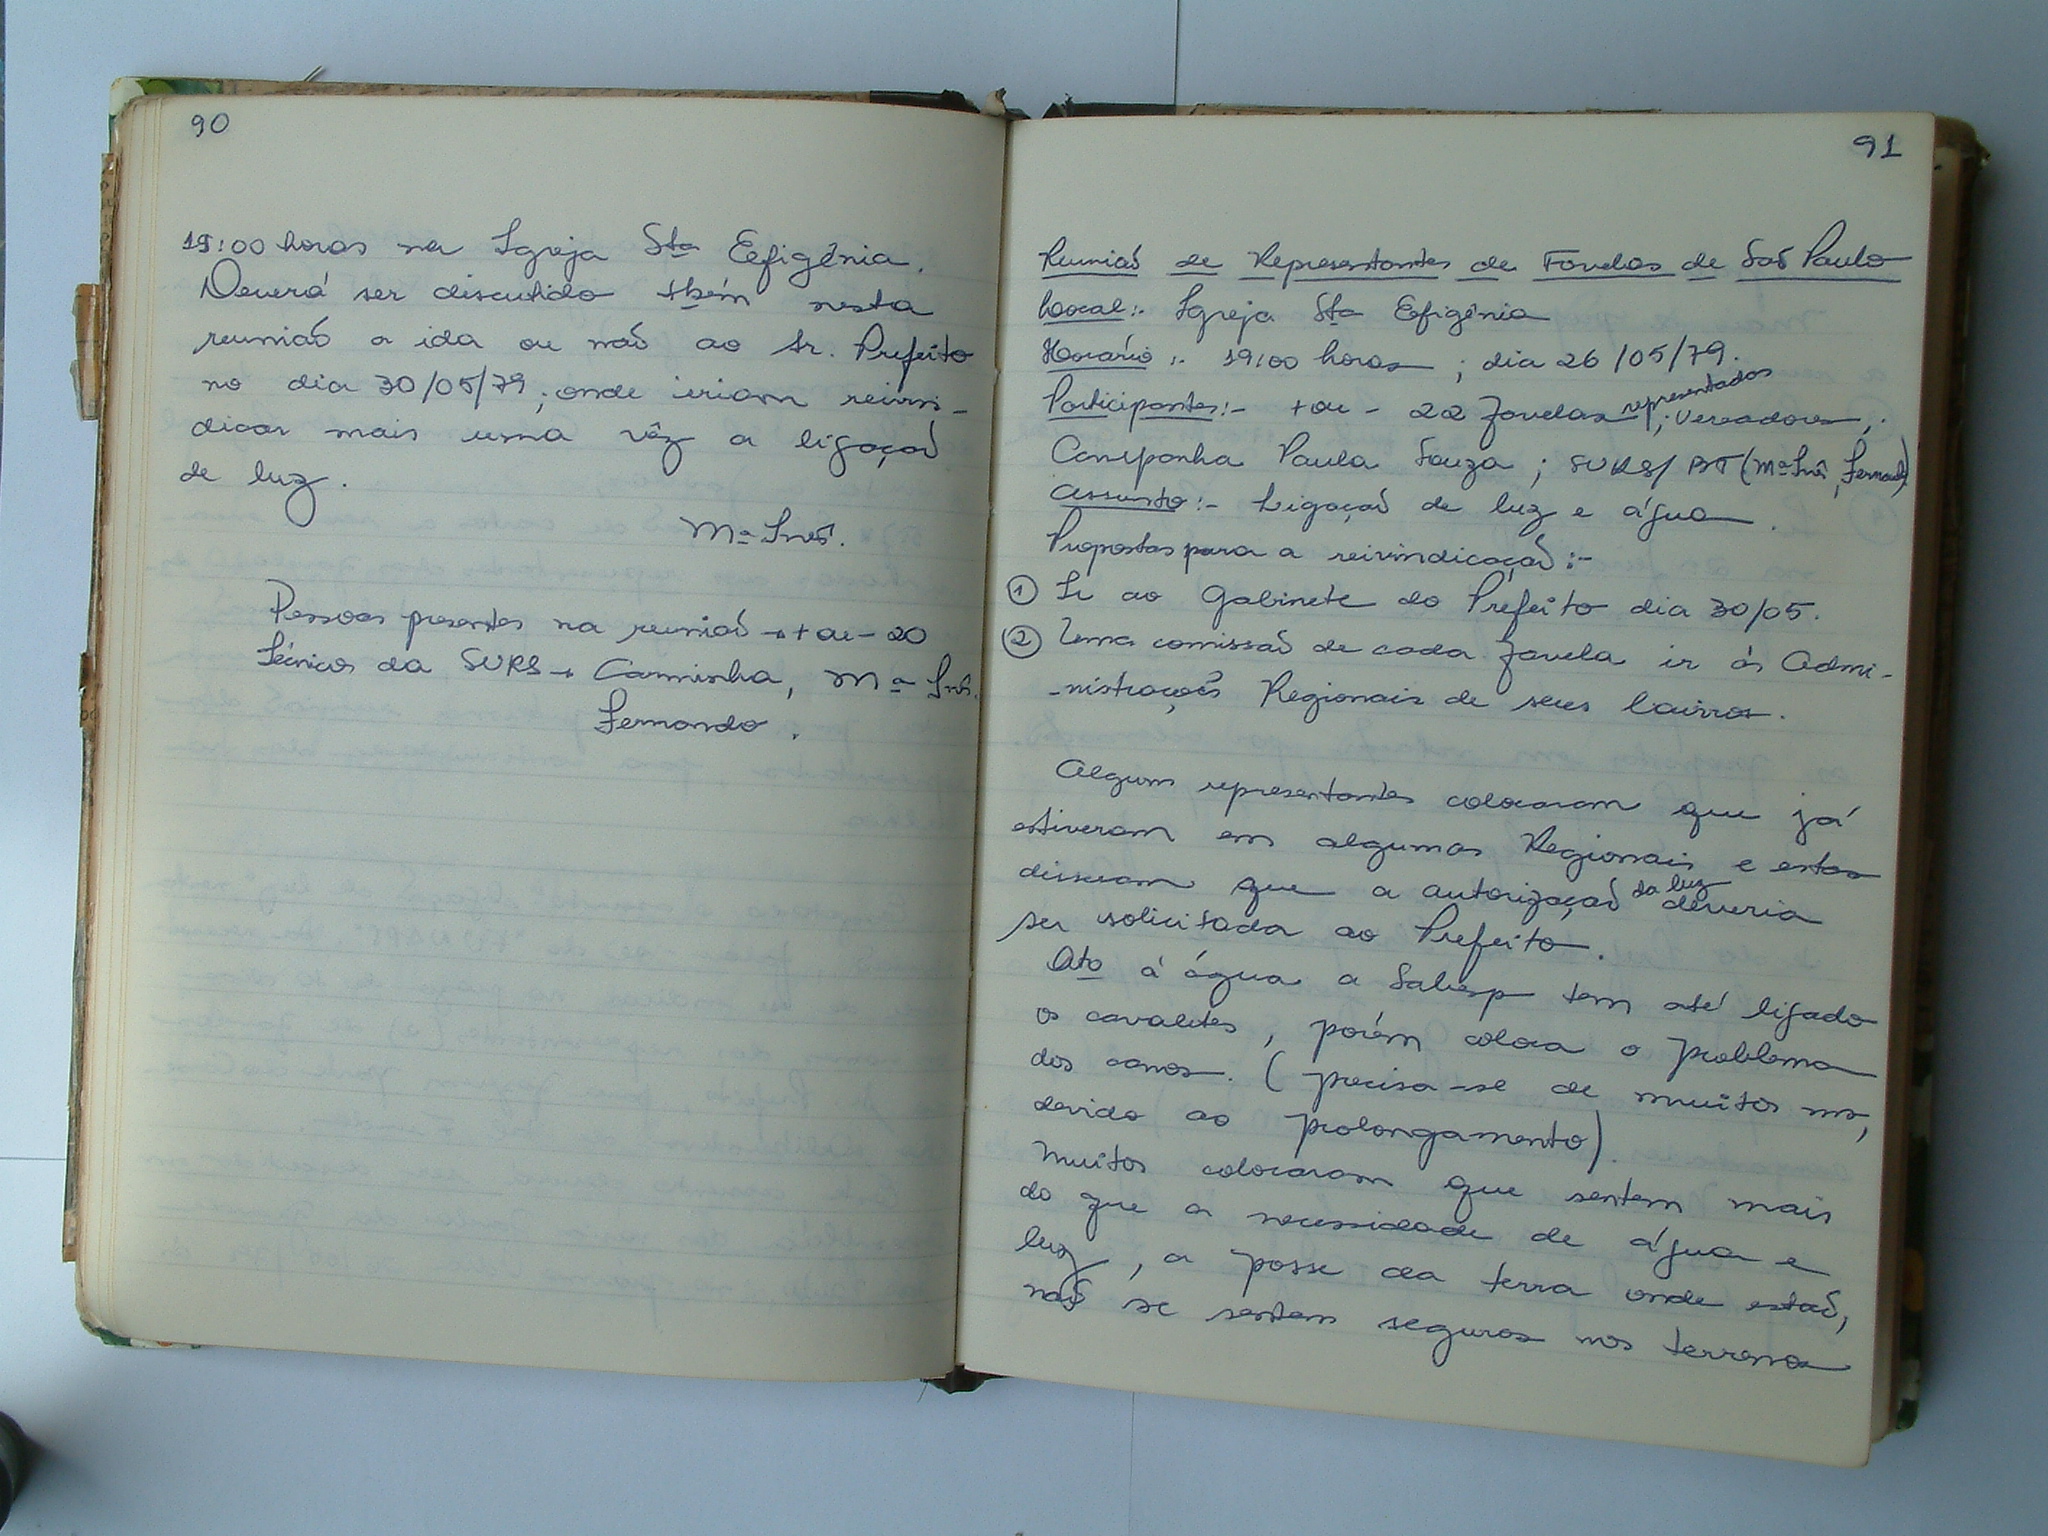 90
19:00 horas na Igreja Sta Eefigênia.
Deverá ser discutido tbém nesta
reunião a ida ou não ao Sr. Prefeito
no dia 30/05/79; onde iriam reivin-
dicar mais uma vêz a ligação
de luz.
Mª Inês.
Pessoas presentes na reunião → + ou - 20
Técnicos da SURS → Carminha, Mª Inês.
Fernando.
91
Reunião de Representantes de Favelas de São Paulo
Local:- Igreja Sta Eefigênia
Horário:- 19:00 horas; dia 26/05/79.
Participantes:- + ou - 22 favelas representados; Vereadores,;
Companha Paula Souza; SURS/BT (Mª Inês, Fernando)
Assunto:- Ligação de luz e água.
Propostas para a reivindicação:-
① Ir ao Gabinete do Prefeito dia 30/05.
② Uma comissão de cada favela ir ás Admi-
-nistrações Regionais de seus bairros.
Alguns representantes colocaram que já
estiveram em algumas Regionais e estas
disseram que a autorização da luz deveria
ser solicitada ao Prefeito.
Qto á água a Sabesp tem até ligado
os cavaletes, porém coloca o problema
dos canos. (precisa-se de muitos ms,
devido ao prolongamento).
Muitos colocaram que sentem mais
do que a necessidade de água e
luz, a posse da terra onde estão,
não se sentem seguros nos terrenos